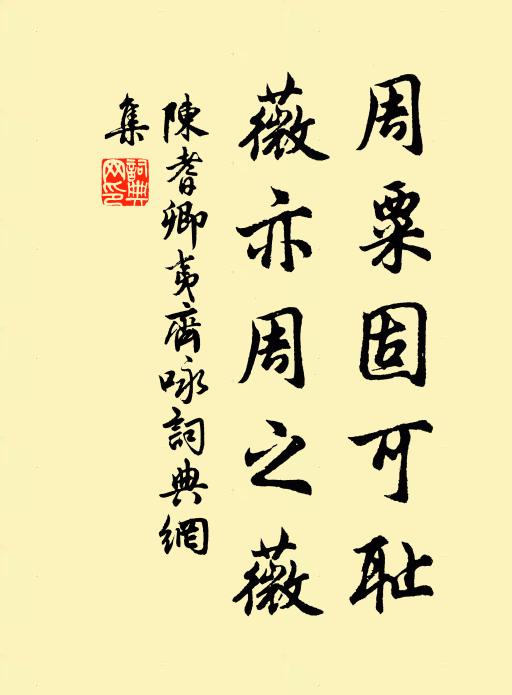 周粟固可耻
薇亦周之薇
陳耆卿夷齊咏詞典網
集
詞典
网印